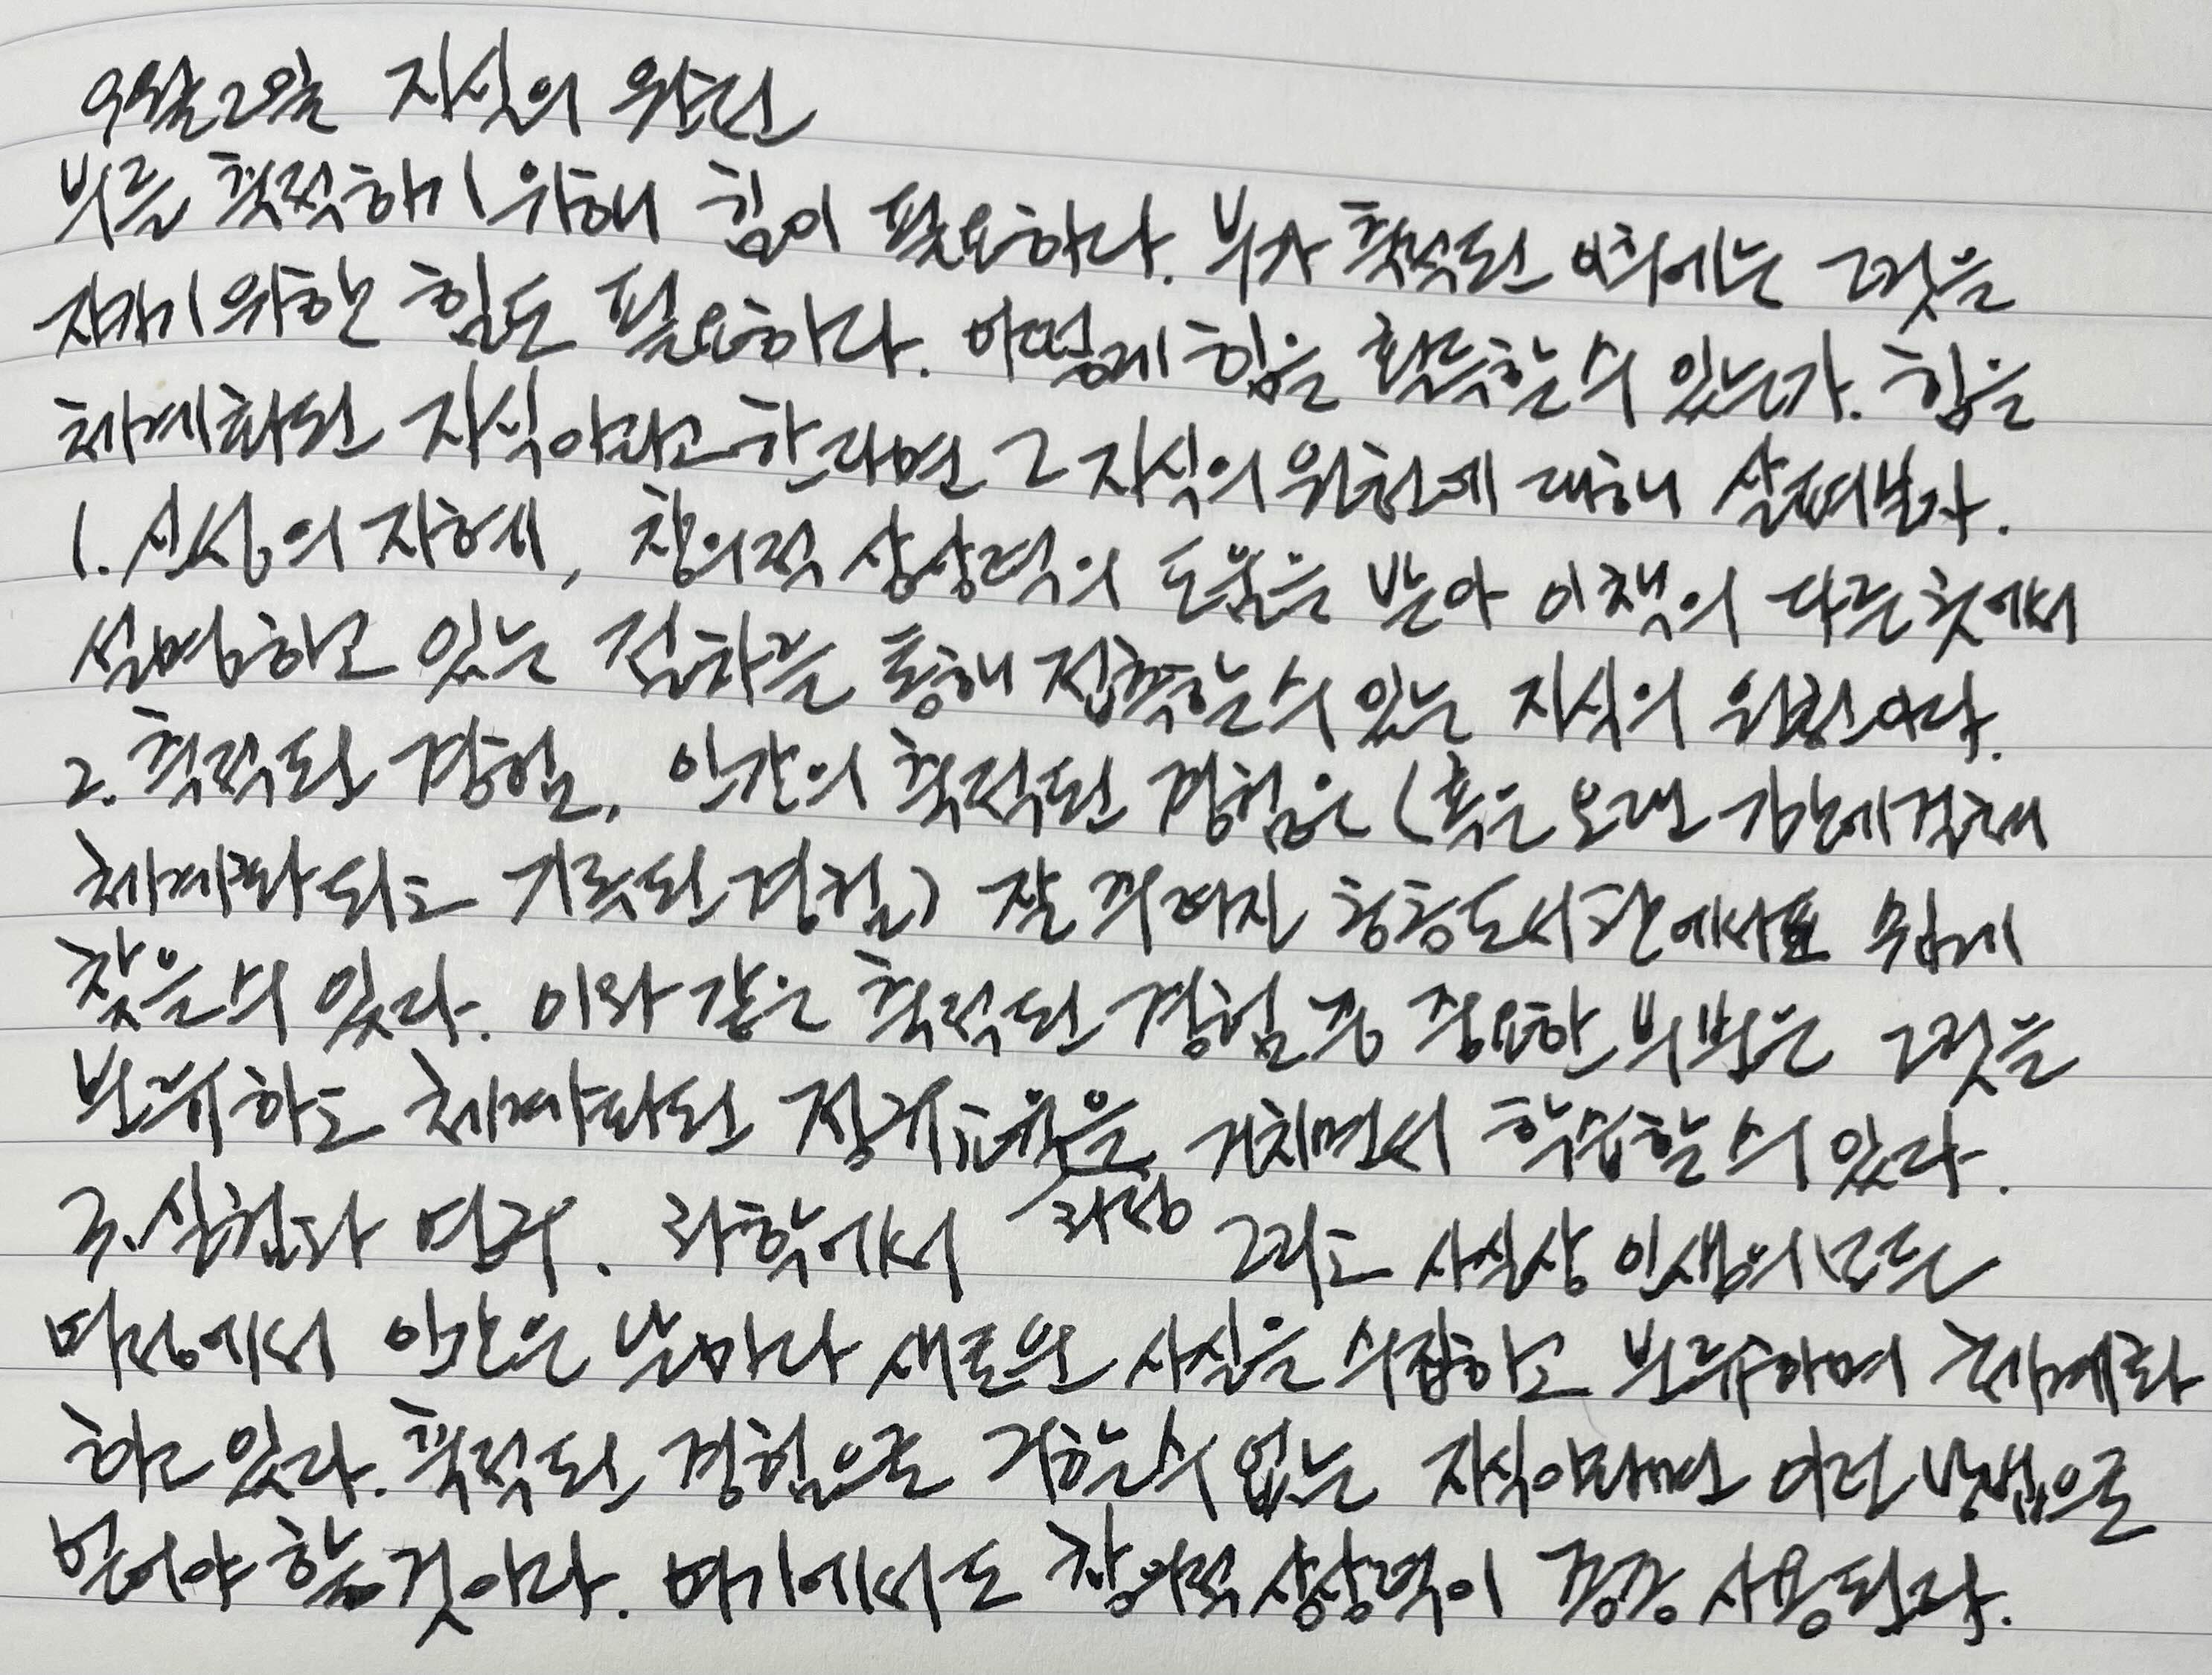 9월2일 지식의 원천
부를 축적하기 위해 힘이 필요하다. 부가 축적된 이후에는 그것을
지키기 위한 힘도 필요하다. 어떻게 힘을 획득할 수 있는가. 힘은
체계화된 지식이라고 한다면 그 지식의 원천에 대해 살펴보자.
1. 신성의 지혜, 창의적 상상력의 도움을 받아 이 책의 다른 곳에서
설명하고 있는 절차를 통해 접촉할 수 있는 지식의 원천이다.
2. 축적된 경험, 인간의 축적된 경험은 (혹은 오랜 기간에 걸쳐
체계화되고 기록된 경험) 잘 꾸며진 공공도서관에서 쉽게
찾을 수 있다. 이와 같은 축적된 경험 중 중요한 부분은 그것을
분류하고 체계화된 정규교육을 거치면서 학습할 수 있다.
과정
3. 실험과 연구. 과학에서 그리고 사실상 인생의 모든
과정에서 인간은 날마다 새로운 사실을 수집하고 분류하며 체계화
하고 있다. 축적된 경험으로 구할 수 없는 지식이라면 이런 방법으로
얻어야 할 것이다. 여기에서도 창의적 상상력이 종종 사용된다.